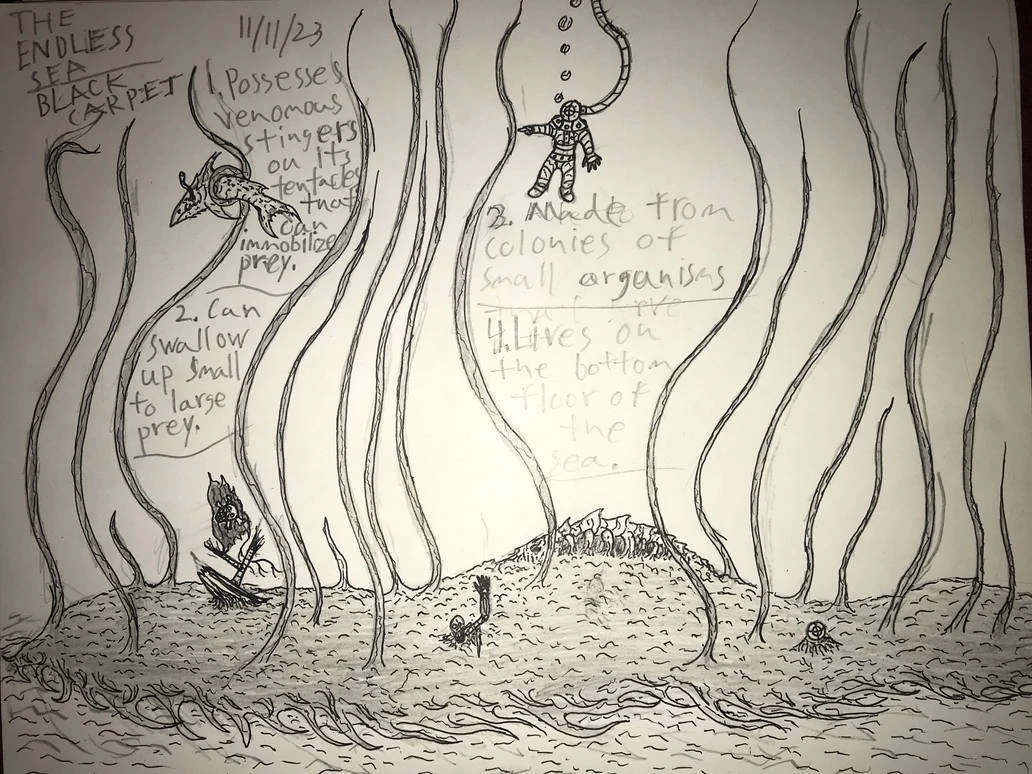 THE
ENDLESS
SEA
BLACK
CARPET
11/11/23
1. Possesses
venomous
stingers
on its
tentacles
that
can
immobilize
prey.
2. Can
swallow
up small
to large
prey.
3. Made from
colonies of
small organisms
that are
4. Lives on
the bottom
floor of
the
sea.